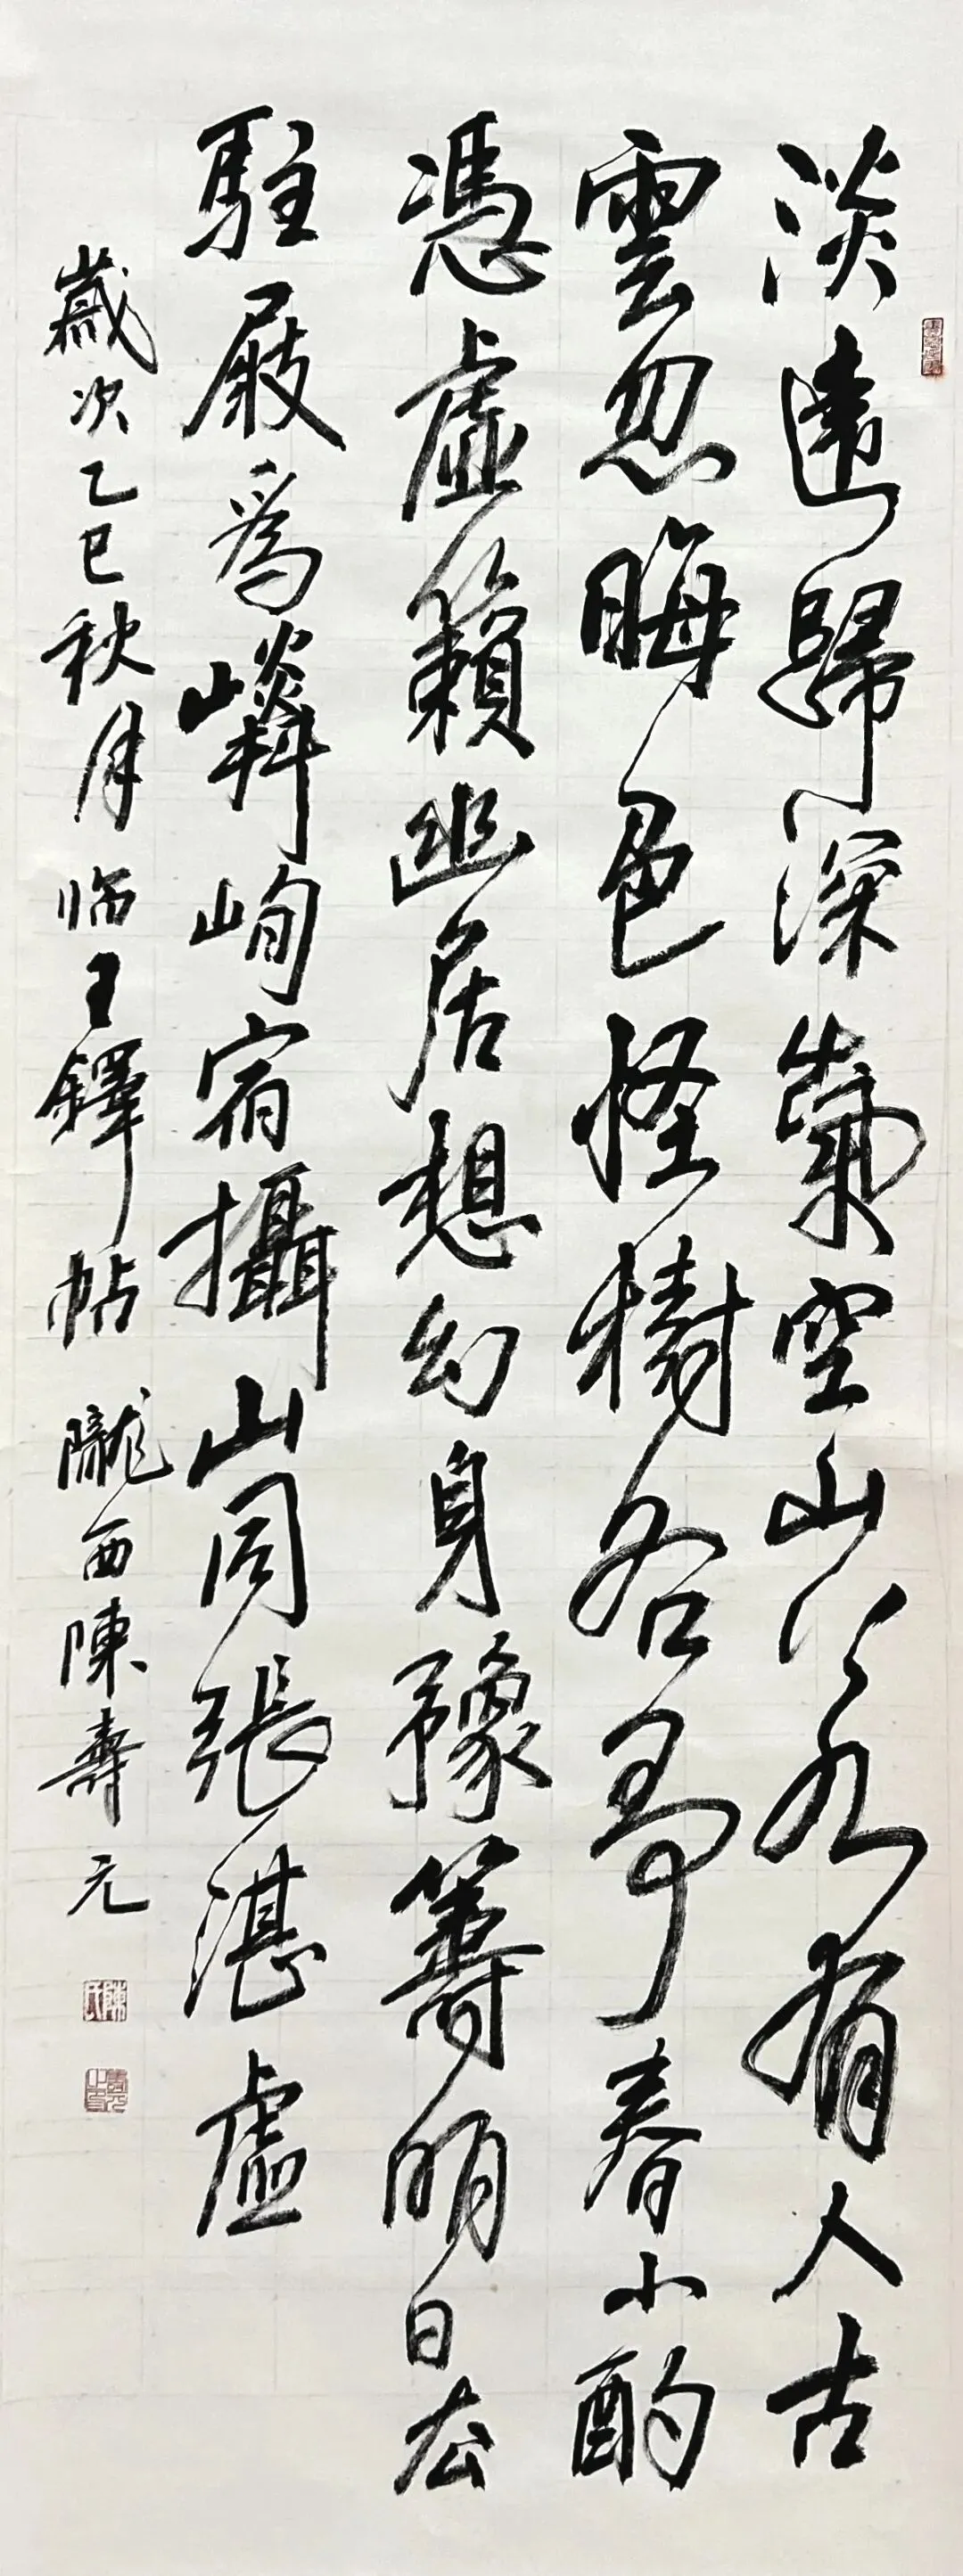 淡遠歸深氣空山有人古
雲忽晦色怪樹各爭春小酌
憑虛籟幽居想幻身豫籌明日去
駐屐爲嶙峋宿攝山同張湛虛
歲次乙巳秋月临王鐸帖 隴西陳壽元
陳氏